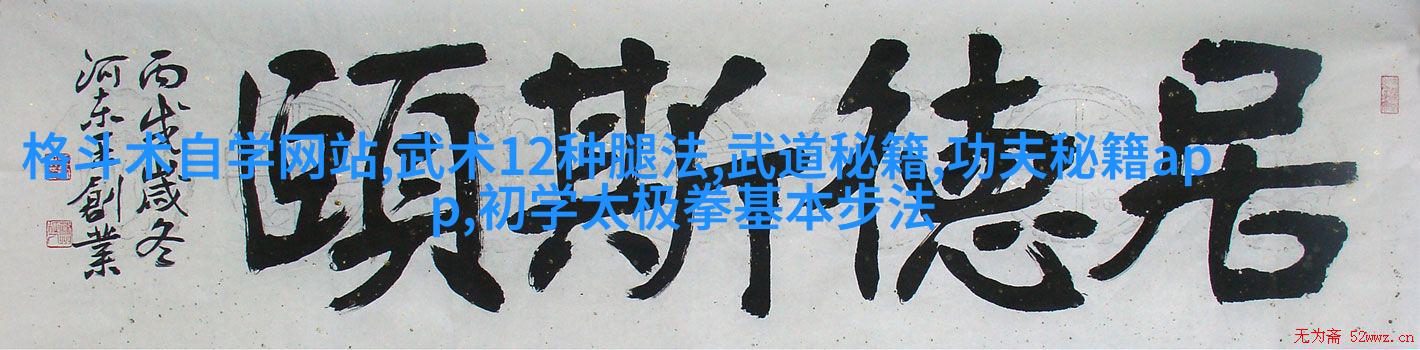 居德斯頤
丙戌歲冬
河东王創業
格斗术自学网站,武术12种腿法,武道秘籍,功夫秘籍ap
p,初学太极拳基本步法
无为斋 52wwz.cn